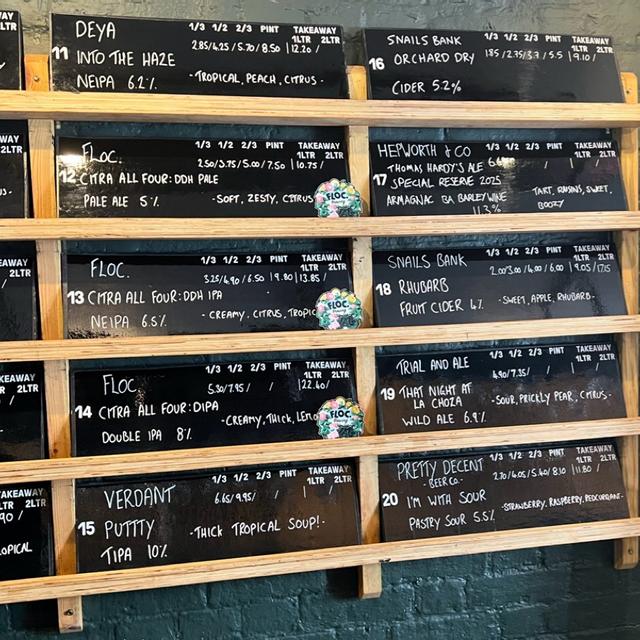 DEYA 1/3 1/2 2/3 PINT TAKEAWAY
1LTR 2LTR
2.85/4.25/5.70/8.50 12.20/
11 INTO THE HAZE
NEIPA 6.2% -TROPICAL, PEACH, CITRUS-
FLOC. 1/3 1/2 2/3 PINT TAKEAWAY
1LTR 2LTR
2.50/3.75/5.00/7.50 10.75/
12 CITRA ALL FOUR: DDH PALE
PALE ALE 5% -SOFT, ZESTY, CITRUS
FLOC.
FLOC. 1/3 1/2 2/3 PINT TAKEAWAY
1LTR 2LTR
3.25/4.90/6.50/9.80 13.85/
13 CITRA ALL FOUR: DDH IPA
NEIPA 6.5% -CREAMY, CITRUS, TROPIC
FLOC.
FLOC. 1/3 1/2 2/3 PINT TAKEAWAY
1LTR 2LTR
5.30/7.95/ / 22.40/
14 CITRA ALL FOUR: DIPA
DOUBLE IPA 8% -CREAMY, THICK,
FLOC.
VERDANT 1/3 1/2 2/3 PINT TAKEAWAY
1LTR 2LTR
6.65/9.95/ / /
15 PUTTTY -THICK TROPICAL SOUP!-
TIPA 10%
SNAILS BANK 1/3 1/2 2/3 PINT TAKEAWAY
1LTR 2LTR
1.85/2.75/3.7/5.5 9.10/
16 ORCHARD DRY
CIDER 5.2%
HEPWORTH & CO 1/3 1/2 2/3 PINT TAKEAWAY
1LTR 2LTR
THOMAS HARDY'S ALE
17 SPECIAL RESERVE 2025
ARMAGNAC BA BARLEY WINE
11.3%
TART, RAISINS, SWEET,
BOOZY
SNAILS BANK 1/3 1/2 2/3 PINT TAKEAWAY
1LTR 2LTR
2.00/3.00/4.00/6.00 9.05/17.15
18 RHUBARB
FRUIT CIDER 4% -SWEET, APPLE, RHUBARB-
TRIAL AND ALE 1/3 1/2 2/3 PINT TAKEAWAY
1LTR 2LTR
4.90/7.35/ / /
19 THAT NIGHT AT
LA CHOZA -SOUR, PRICKLY PEAR, CITRUS-
WILD ALE 6.9%
PRETTY DECENT 1/3 1/2 2/3 PINT TAKEAWAY
-BEER CO- 1LTR 2LTR
2.70/4.05/5.40/8.10 11.80/
20 I'M WITH SOUR
PASTRY SOUR 5.5% -STRAWBERRY, RASPBERRY, REDCURRANT-